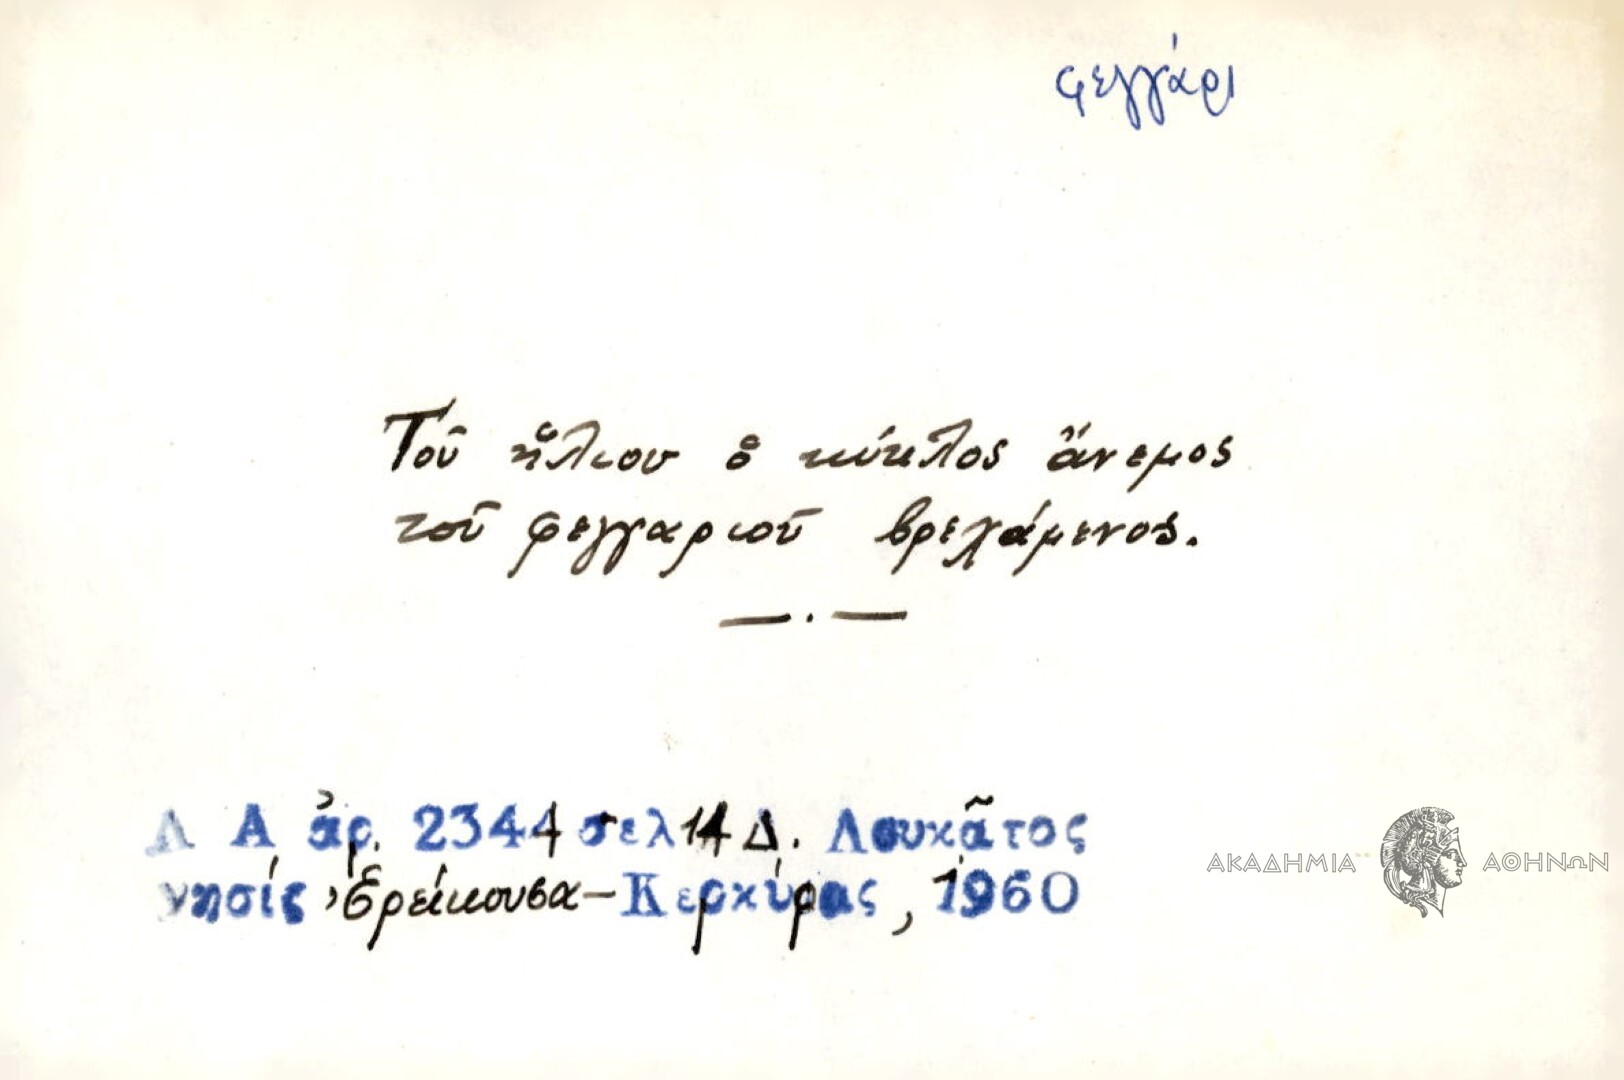 φεγγάρι
Τοῦ ἥλιου ὁ κύκλος ἄνεμος
τοῦ φεγγαριοῦ βρεχάμενος.
Λ Α ἀρ. 2344 σελ 14 Δ. Λουκᾶτος
νησίς Ἐρείκουσα - Κερκύρας, 1960
ΑΚΑΔΗΜΙΑ ΑΘΗΝΩΝ